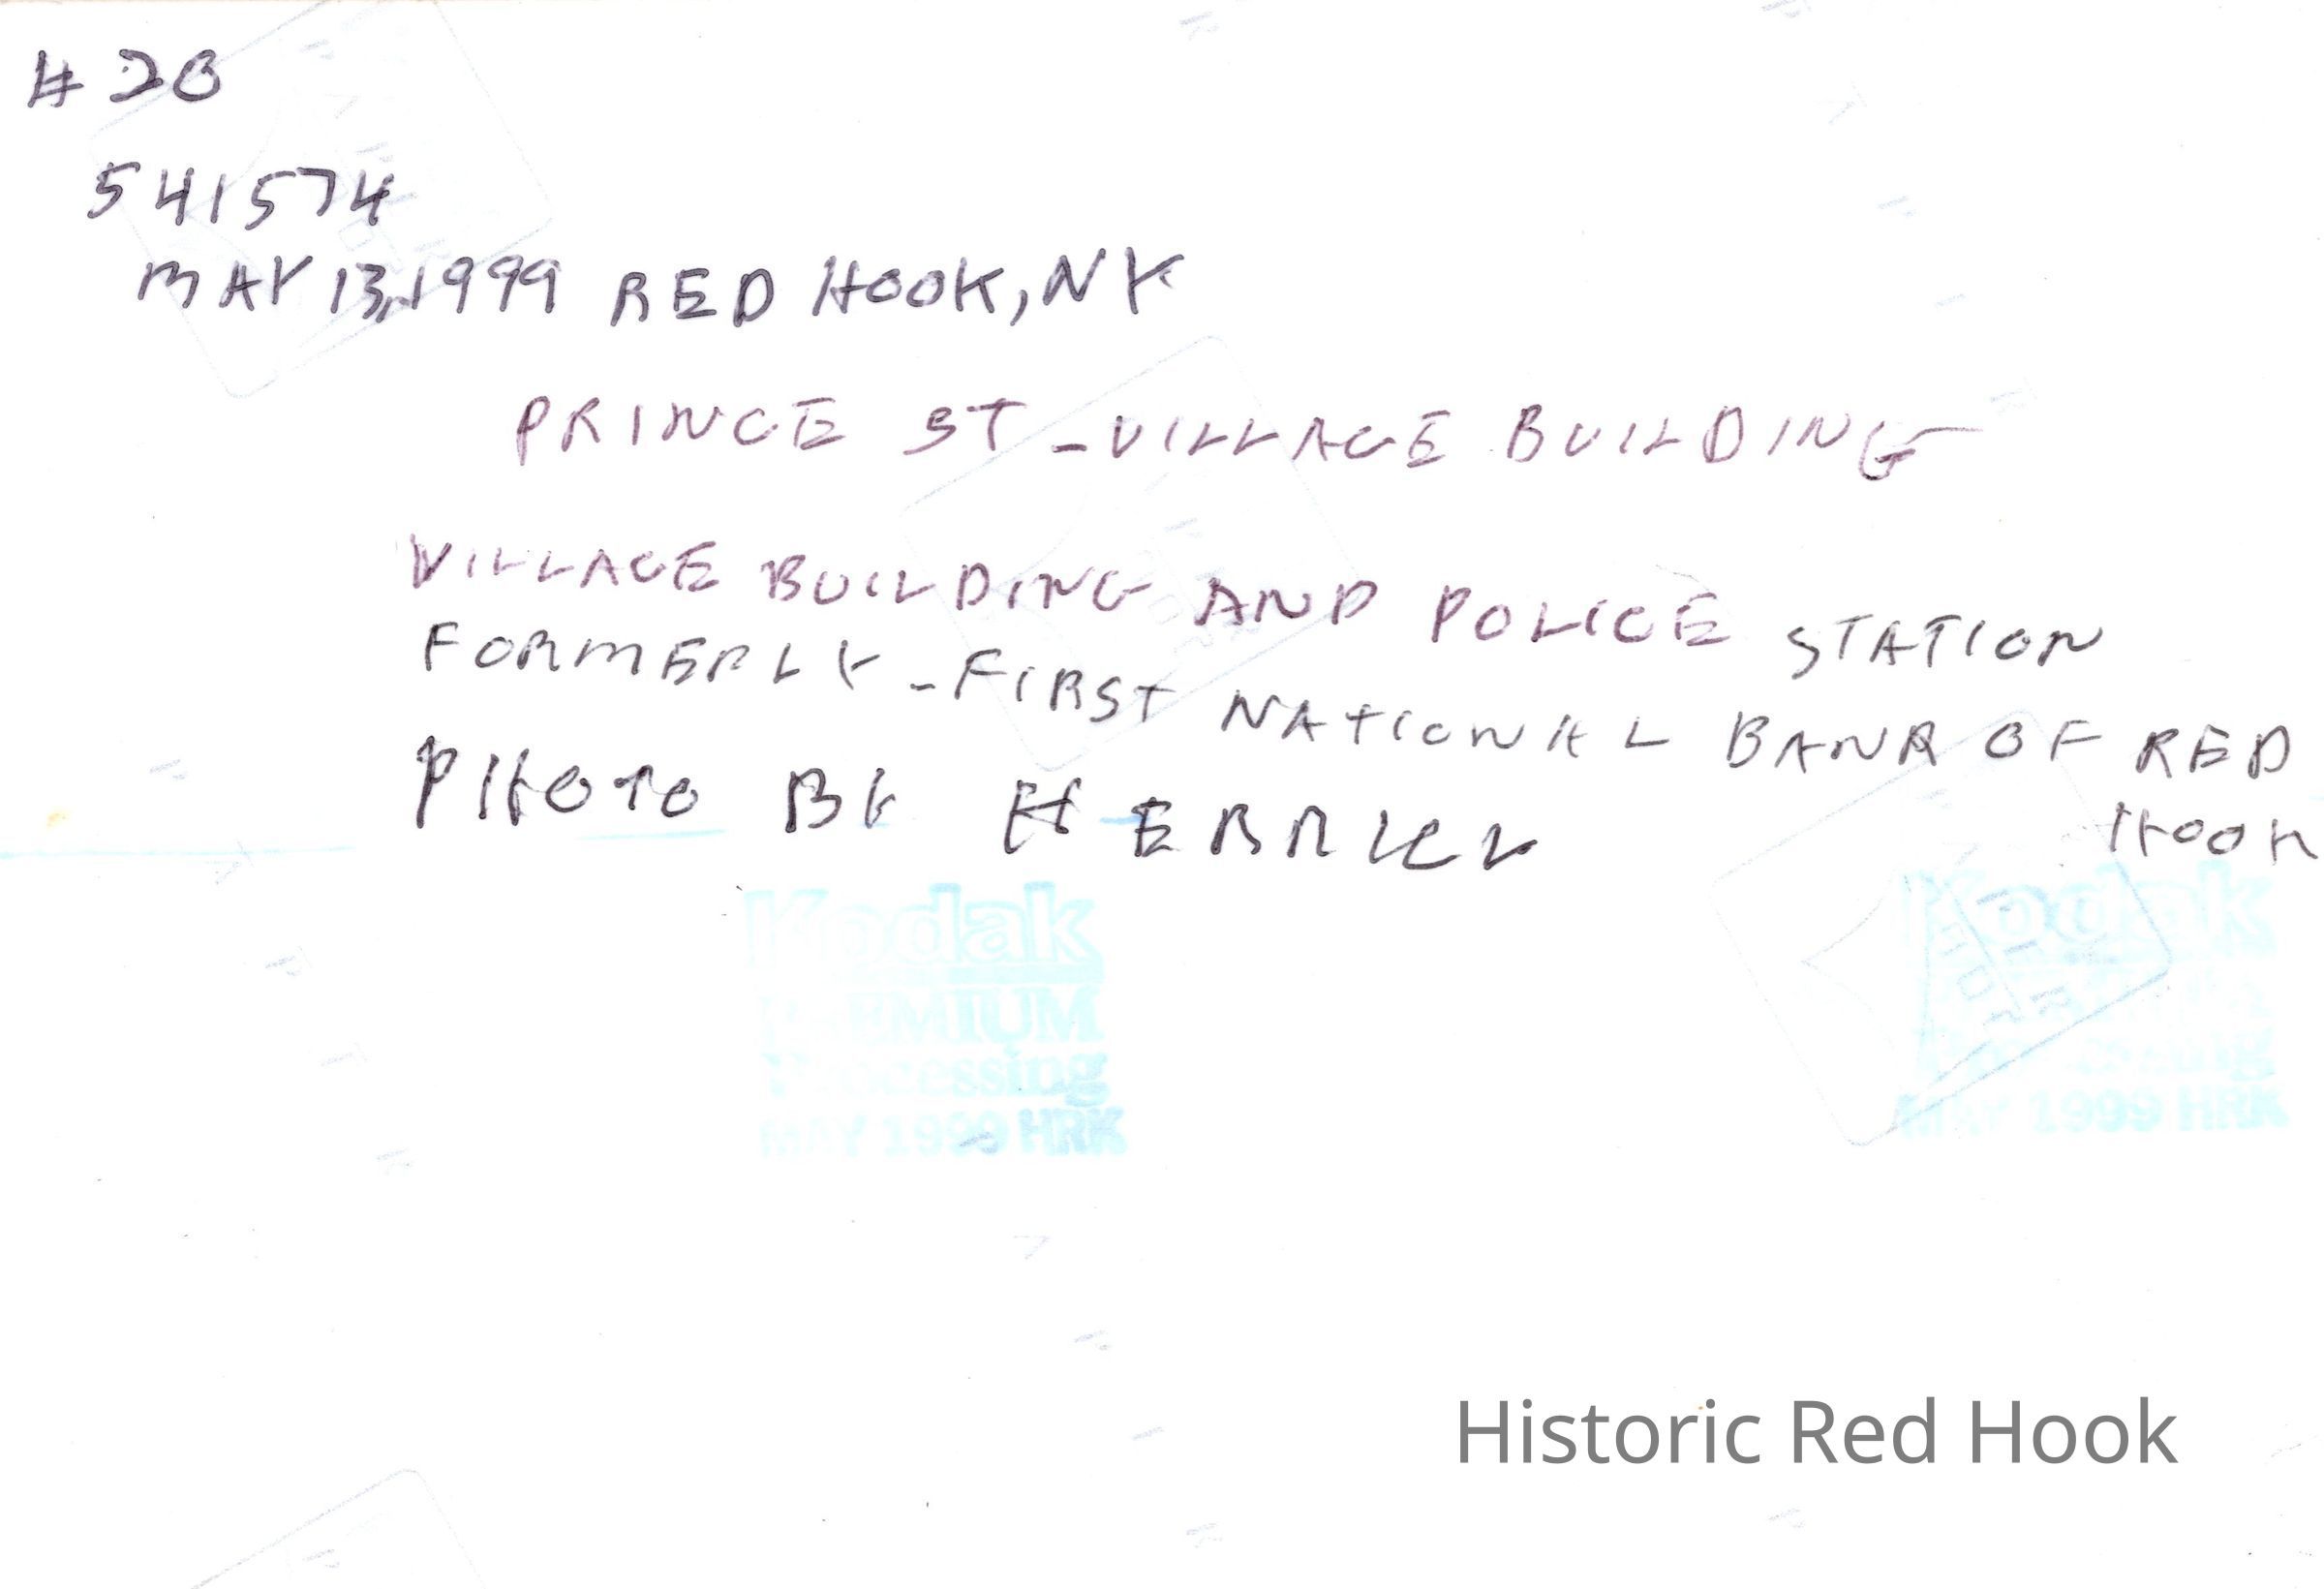 #20
541574
MAY 13, 1999 RED HOOK, NY
PRINCE ST - VILLAGE BUILDING
VILLAGE BUILDING AND POLICE STATION
FORMERLY - FIRST NATIONAL BANK OF RED
HOOK
PHOTO BY HERRICK
Kodak Kodak
PREMIUM
Processing Processing
MAY 1999 HRK MAY 1999 HRK
Historic Red Hook